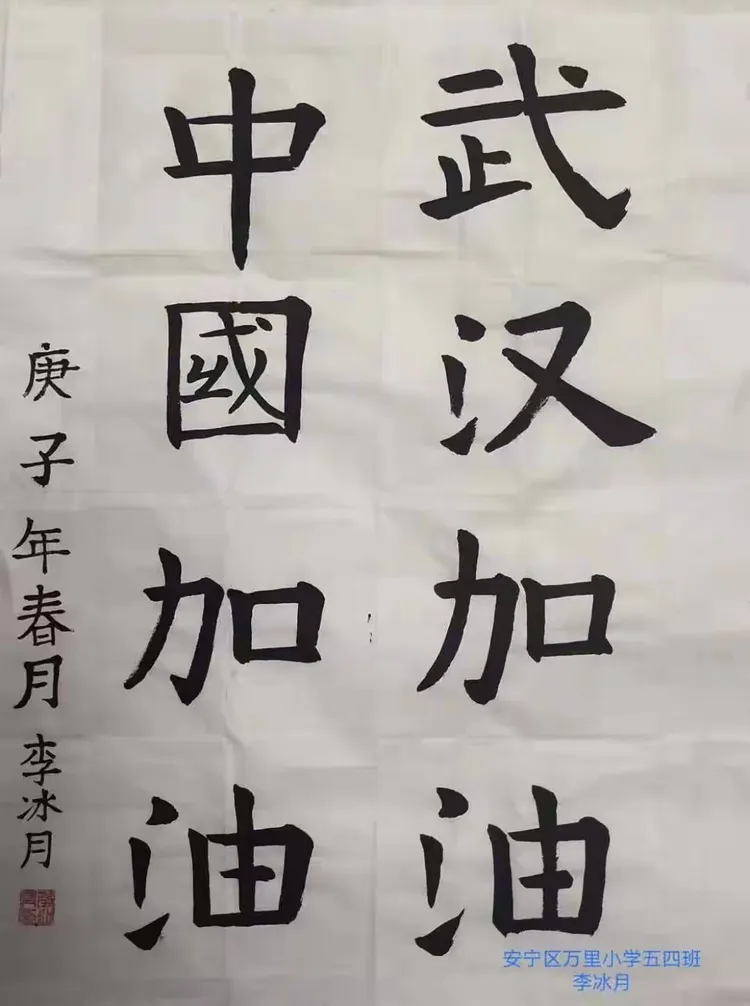 武汉加油
中國加油
庚子年春月李冰月
安宁区万里小学五四班
李冰月